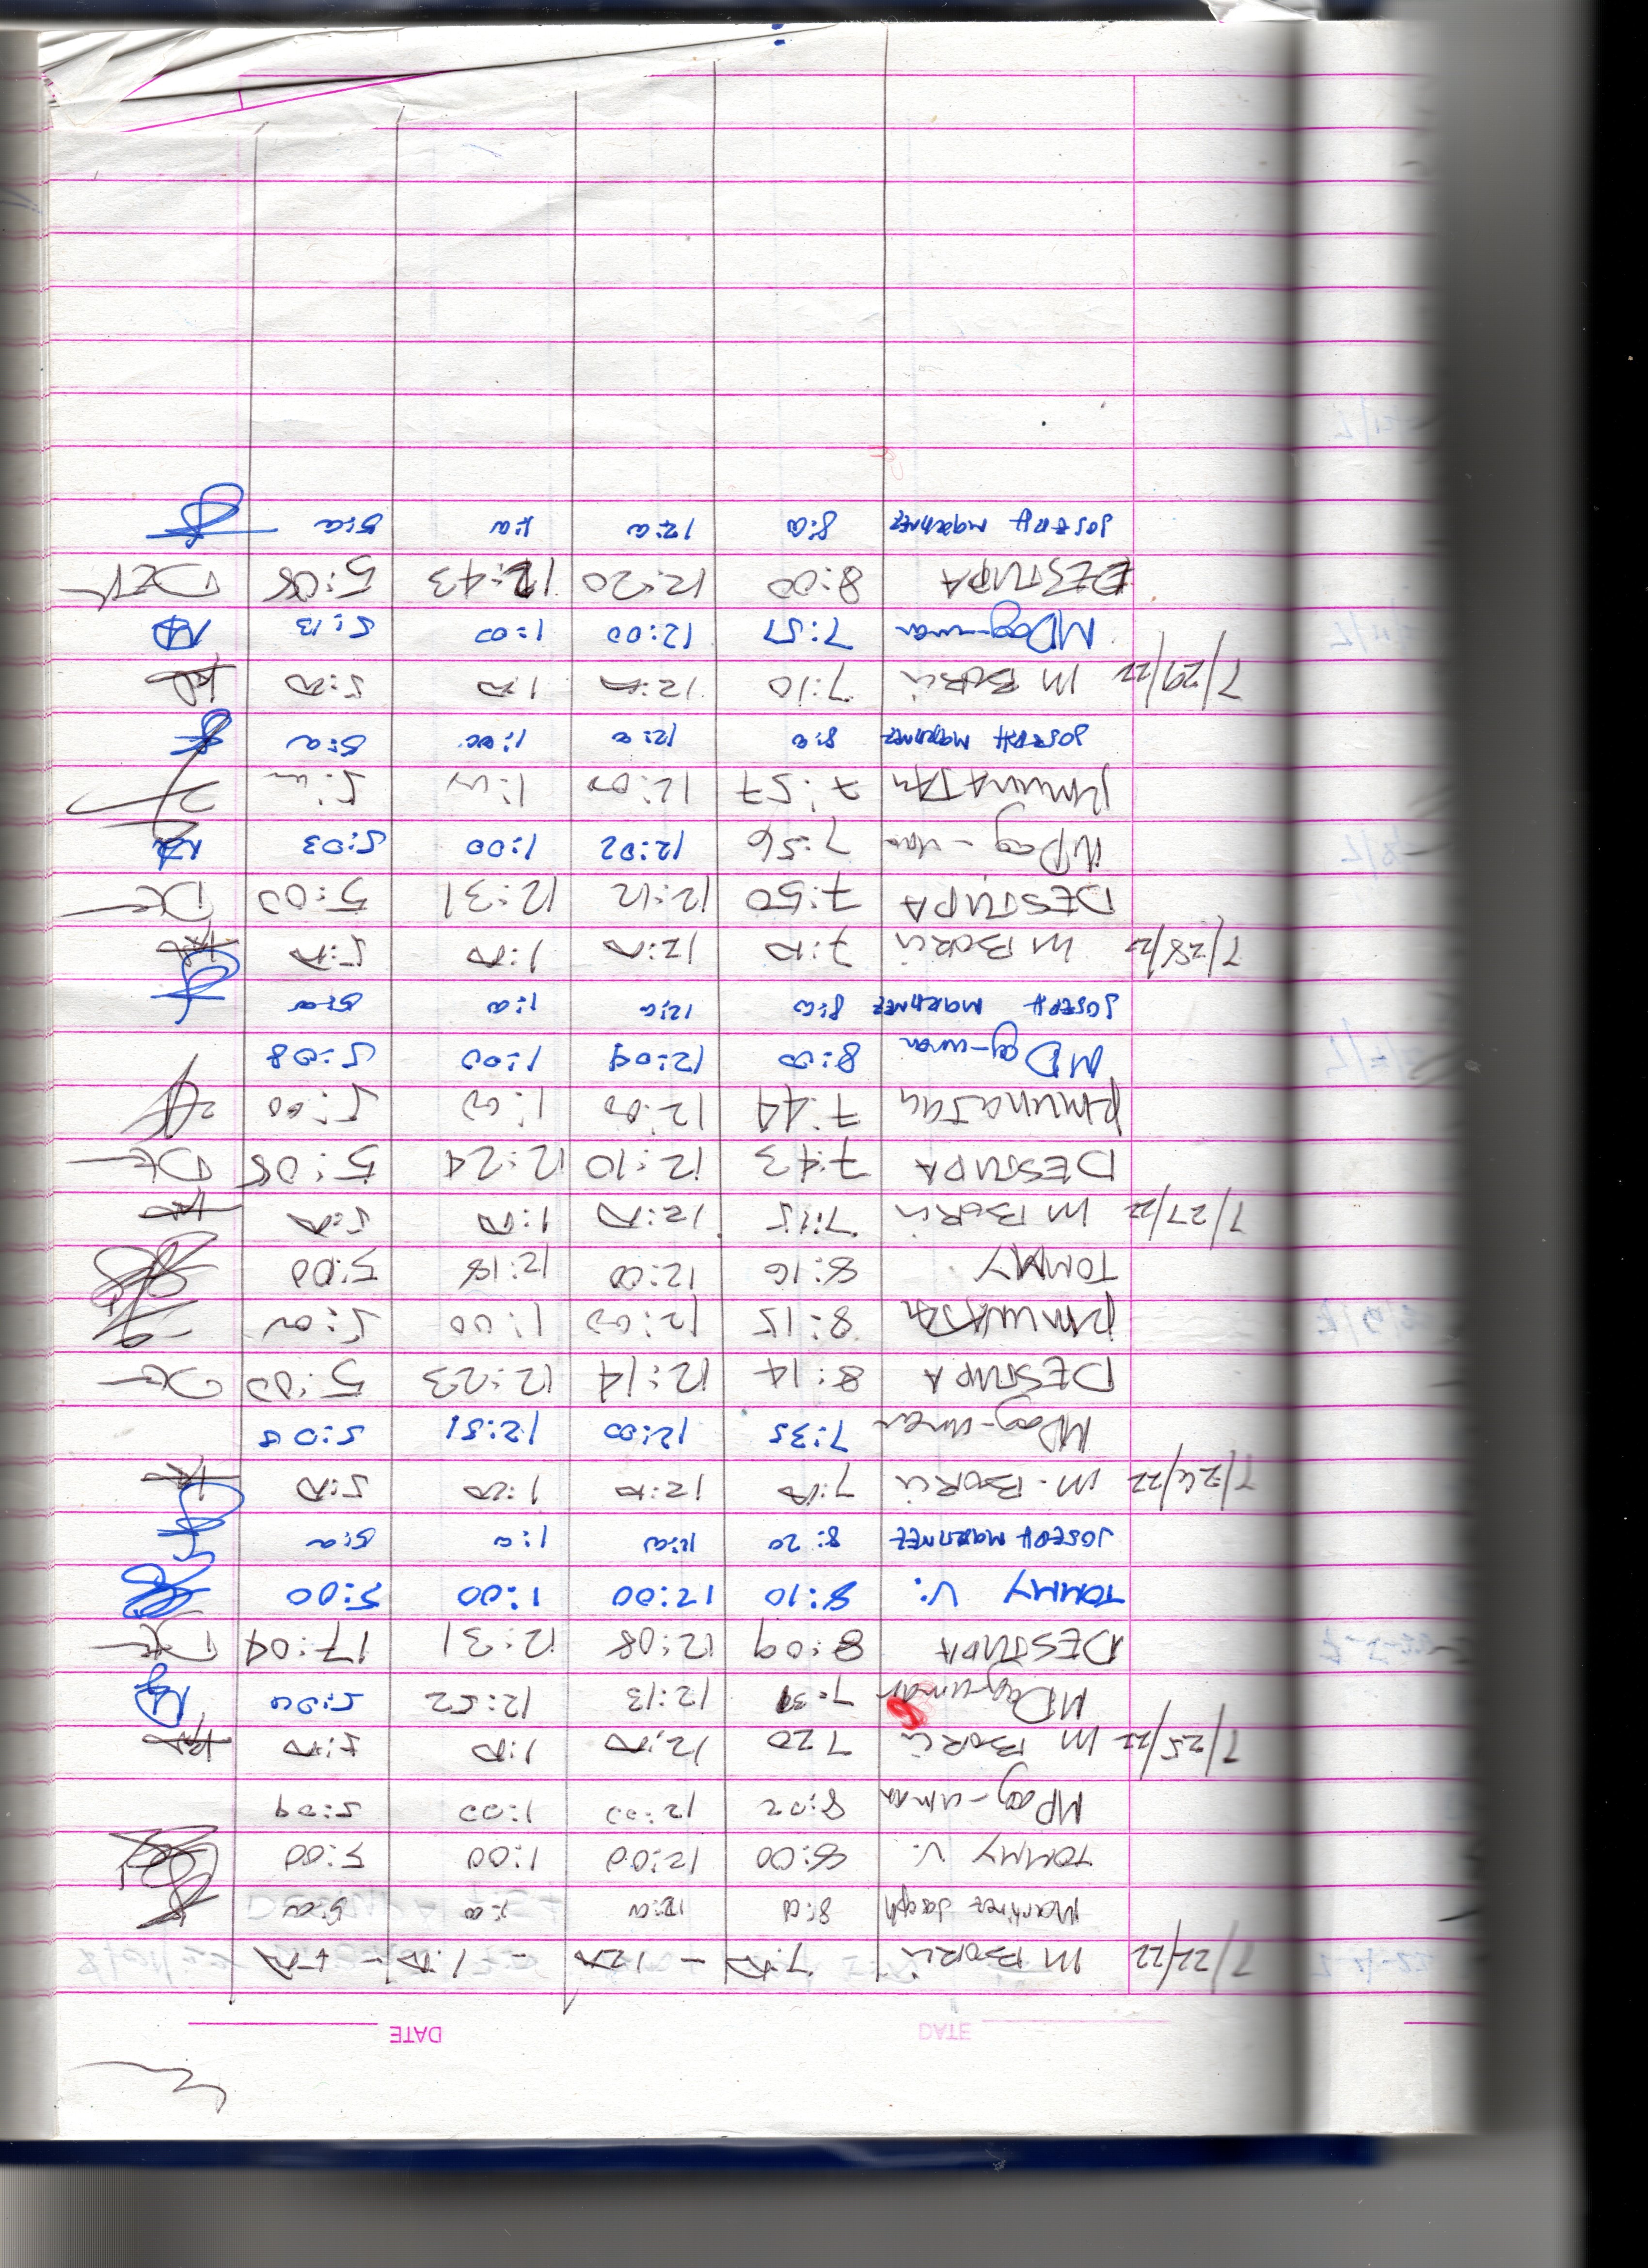 DATE DATE
7/22/22 M BORU 7:00 - 12:00 - 1:00 - 5:00
Martinez Joseph 8:00 12:00 1:00 5:00
TOMMY V. 8:00 12:00 1:00 5:00
MDag-uman 8:02 12:00 1:00 5:09
7/25/22 M BORU 720 12:00 1:00 5:00
MDag-uman 7:31 12:13 12:52
DESTUPA 8:09 12:08 12:31 17:04
TOMMY V. 8:10 12:00 1:00 5:00
JOSEPH MARTINEZ 8:20 12:00 1:00 5:00
7/26/22 M. BORU 7:00 12:00 1:00 5:00
MDag-uman 7:35 12:00 12:51 5:05
DESTUPA 8:14 12:14 12:23 5:00
8:15 12:00 1:00 5:00
TOMMY 8:16 12:00 12:18 5:00
7/27/22 M BORU 7:15 12:00 1:00 5:00
DESTUPA 7:43 12:10 12:24 5:05
7:44 12:00 1:00 5:00
MDag-uman 8:00 12:09 1:00 5:08
JOSEPH MARTINEZ 8:00 12:00 1:00 5:00
7/28/22 M BORU 7:10 12:00 1:00 5:00
DESTUPA 7:50 12:12 12:31 5:00
MDag-uman 7:56 12:02 1:00 5:03
7:57 12:00 1:00 5:00
JOSEPH MARTINEZ 8:00 12:00 1:00 5:00
7/29/22 M BORU 7:10 12:00 1:00 5:00
MDag-uman 7:57 12:00 1:00 5:13
DESTUPA 8:00 12:20 12:43 5:05
JOSEPH MARTINEZ 8:00 12:00 1:00 5:00